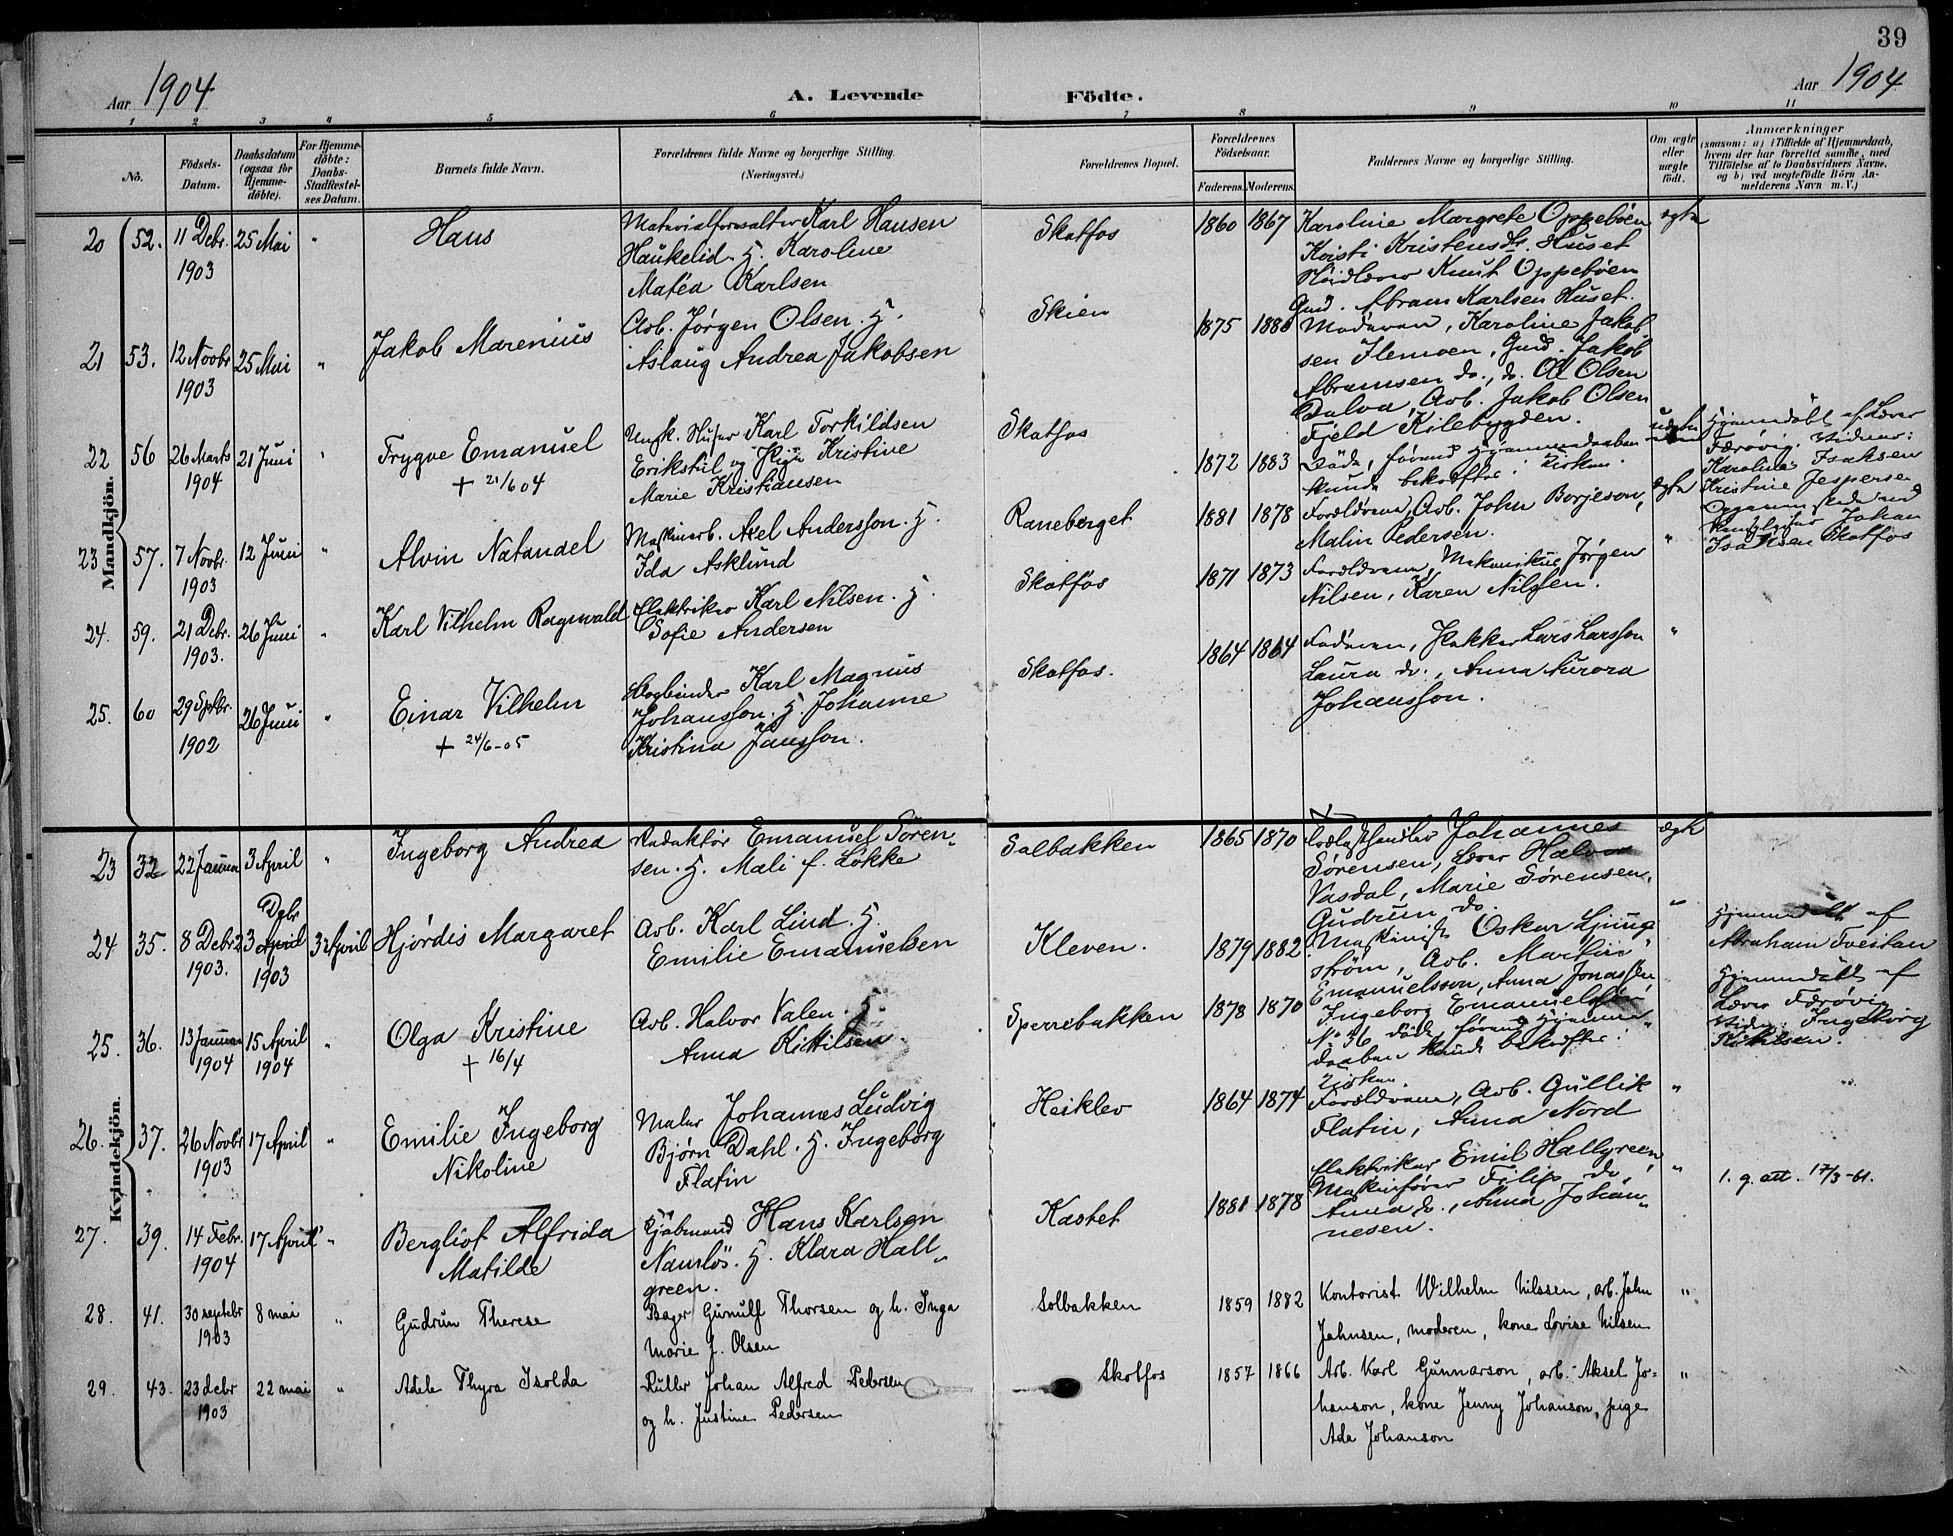 39
Aar 1904
A. Levende Födte.
Aar 1904
1 2 3 4 5 6 7 8 9 10 11
No.
Födsels-
Datum.
Daabsdatum
(ogsaa for
Hjemme-
døbte).
For Hjemme-
døbte:
Daabs-
Stadfæstel-
ses Datum.
Barnets fulde Navn.
Forældrenes fulde Navne og borgerlige Stilling.
(Næringsvei.)
Forældrenes Bopæl.
Forældrenes
Födselsaar.
Faderens. Moderens.
Faddernes Navne og borgerlige Stilling.
Om ægte
eller
uægte
født.
Anmærkninger
(saasom: a) i Tilfælde af Hjemmedaab,
hvem der har forrettet samme, med
Tilföielse af to Daabsvidners Navne,
og b) ved uægtefödte Börn An-
melderens Navn m. V.)
Mandkjön.
20 52. 11 Debr. 1903 25 Mai " Hans
Materialforvalter Karl Hansen
Haukelid. H. Karoline
Matéa Karlsen
Skotfos 1860 1867
Karoline Margrete Oppebøen
Kristi Kristensdt. Huset
Knut Oppebøen
Gmd. Abram Karlsen Huset.
ægte
21 53. 12 Novbr 1903 25 Mai " Jakob Marenius
Arb. Jørgen Olsen. H.
Aslaug Andrea Jakobsen
Skien 1875 1880
Moderen, Karoline Jakob
sen Flemoen, Gmd. Jakob
Abramsen do., do. Ol Olsen
Dalva, Arb. Jakob Olsen
Fjeld Kilebygden.
22 56 26 Marts 1904 21 Juni " Trygve Emanuel
+ 21/6 04
Ungk. Karl Torkildsen
Erikstul og Pige Kristine
Marie Kristiansen
Skotfos 1872 1883
Døde, førend Hjemmedaaben
kunde bekræftes i Kirken.
uægte
Hjemmedøbt af Lærer
Færøvig. Vidner:
Karoline Isaksen
Kristine Jespersen
Johan
Isaksen Skotfos
23 57. 7 Novbr. 1903 12 Juni " Alvin Natanael
Maskinarb. Axel Andersson. H.
Ida Asklund
Raneberget 1881 1878
Forældrene, Arb. John Borjeson,
Malin Pedersen.
ægte
24. 59. 21 Debr. 1903. 26 Juni " Karl Vilhelm Ragnvald
Elektriker Karl Nilsen. H.
Sofie Andersen
Skotfos 1871 1873
Forældrene, Mekanikus Jørgen
Nilsen, Karen Nilsen.
"
25. 60 29 Sptbr. 1902 26 Juni " Einar Vilhelm
+ 24/6-05
Karl Magnus
Johansson. H. Johanne
Kristina Jansson.
Skotfos. 1864 1864
Faderen, Pakker Lars Larsson
Laura do., Anna Aurora
Johansson.
"
Kvindekjön.
23 32 22 Januar 3 April " Ingeborg Andrea
Redaktør Emanuel Sören-
sen. H. Mali f. Løkke
Solbakken 1865 1870
Johannes
Sørensen, Lærer Halvor
Vasdal, Marie Sørensen,
Gudrun do.
ægte
24 35. 8 Debr 1903. 23 April Debr 1903 3 April Hjørdis Margaret
Arb. Karl Lind. H.
Emilie Emanuelsen
Kleven. 1879 1882
Maskinist Oskar Ljung
strøm, Arb. Martin
Emanuelsson, Anna Jonassen,
Ingeborg Emanuelsson
"
Hjemmedøbt af
Abraham Tveitan
25. 36. 13 Januar 1904 15 April 1904 " Olga Kristine
+ 16/4
Arb. Halvor Valen. H
Anna Kittilsen.
Sperrebakken 1878 1870
No 36 døde, førend Hjemme
daaben kunde bekræftes i
Kirken.
"
Hjemmedøbt af
Lærer Færøvig.
Vidn: Ingeborg
Kittilsen.
26. 37. 26 Novbr 1903 17 April " Emilie Ingeborg
Nikoline
Maler Johannes Ludvig
Bjørn Dahl. H. Ingeborg
Flatin
Heiklev 1864 1874
Forældrene, Arb. Gullik
Flatin, Anna Nord
"
27. 39. 14 Febr. 1904 17 April " Bergliot Alfrida
Matilde
Kjøbmand Hans Karlsen
Namløs. H. Klara Hall-
green.
Kastet 1881 1878
Elektriker Emil Hallgreen,
Maskinfører Filip do,
Anna do., Anna Johan-
nesen.
"
1. g. att. 17/3-61.
28. 41. 30 septebr 1903 8 mai " Gudrun Therese
Bager Gunulf Thorsen og h. Inga
Marie f. Olsen
Solbakken 1859 1882
Kontorist Wilhelm Nilssen, arb. John
Johnsen, moderen, kone Lovise Nilsen
"
29. 43. 23 debr 1903 22 mai " Adele Thyra Isolda
Ruller Johan Alfred Pedersen
og h. Justine Pedersen
Skotfos 1857 1866
Arb. Karl Gunnarson, arb. Aksel Jo-
hanson, kone Jenny Johanson, pige
Ada Johanson
"